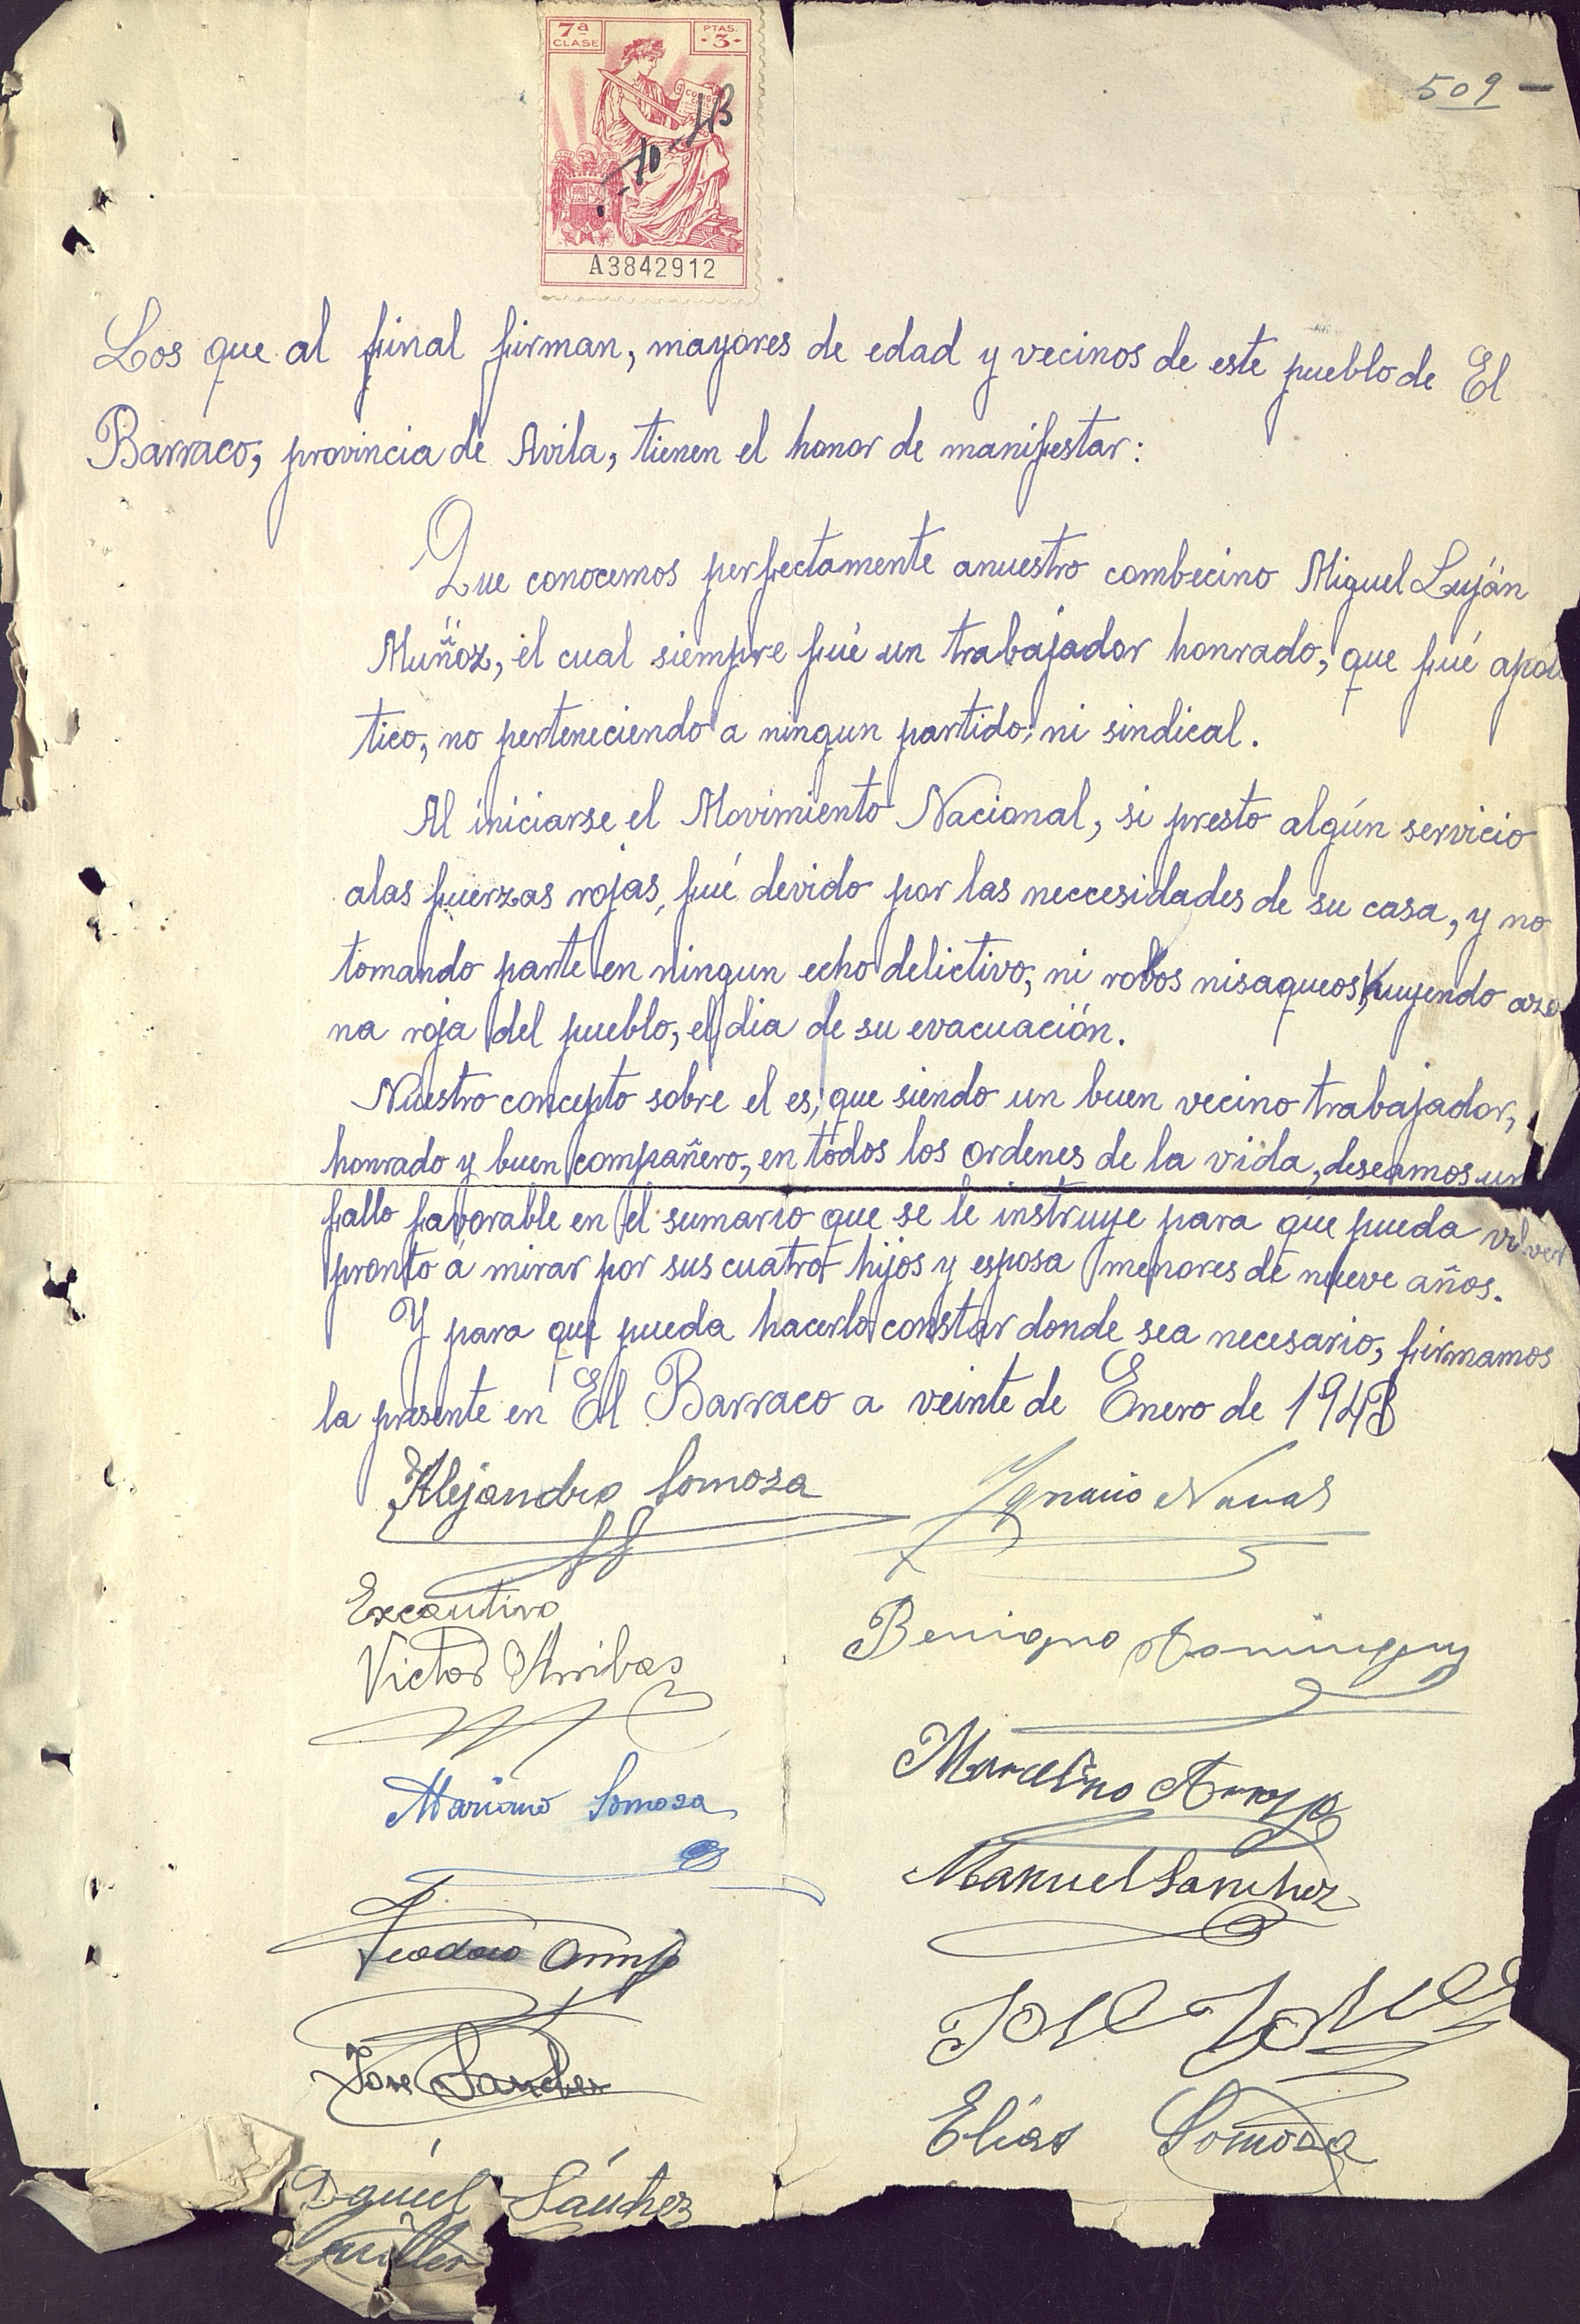 7ª CLASE
PTAS. -3-
-10-43
A3842912
509-
Los que al final firman, mayores de edad y vecinos de este pueblo de El
Barraco, provincia de Avila, tienen el honor de manifestar:
Que conocemos perfectamente anuestro combecino Miguel Luján
Muñoz, el cual siempre fué un trabajador honrado, que fué apolí
tico, no perteneciendo a ningun partido, ni sindical.
Al iniciarse el Movimiento Nacional, si presto algún servicio
alas fuerzas rojas, fué devido por las neccesidades de su casa, y no
tomando parte en ningun echo delictivo, ni robos nisaqueos, huyendo azo
na roja del pueblo, el dia de su evacuación.
Nuestro concepto sobre el es, que siendo un buen vecino trabajador,
honrado y buen compañero, en todos los ordenes de la vida, deseamos un
fallo favorable en el sumario que se le instruye para que pueda volver
pronto a mirar por sus cuatro hijos y esposa menores de nueve años.
Y para que pueda hacerlo constar donde sea necesario, firmamos
la presente en El Barraco a veinte de Enero de 1943
Alejandro Somoza
Ygnacio Navas
Victor Arribas
Benigno Dominguez
Mariano Somoza
Marcelino Arroyo
Manuel Sanchez
Teodoro Arroyo
Jose
Jose Sanchez
Elias Somoza
Sánchez